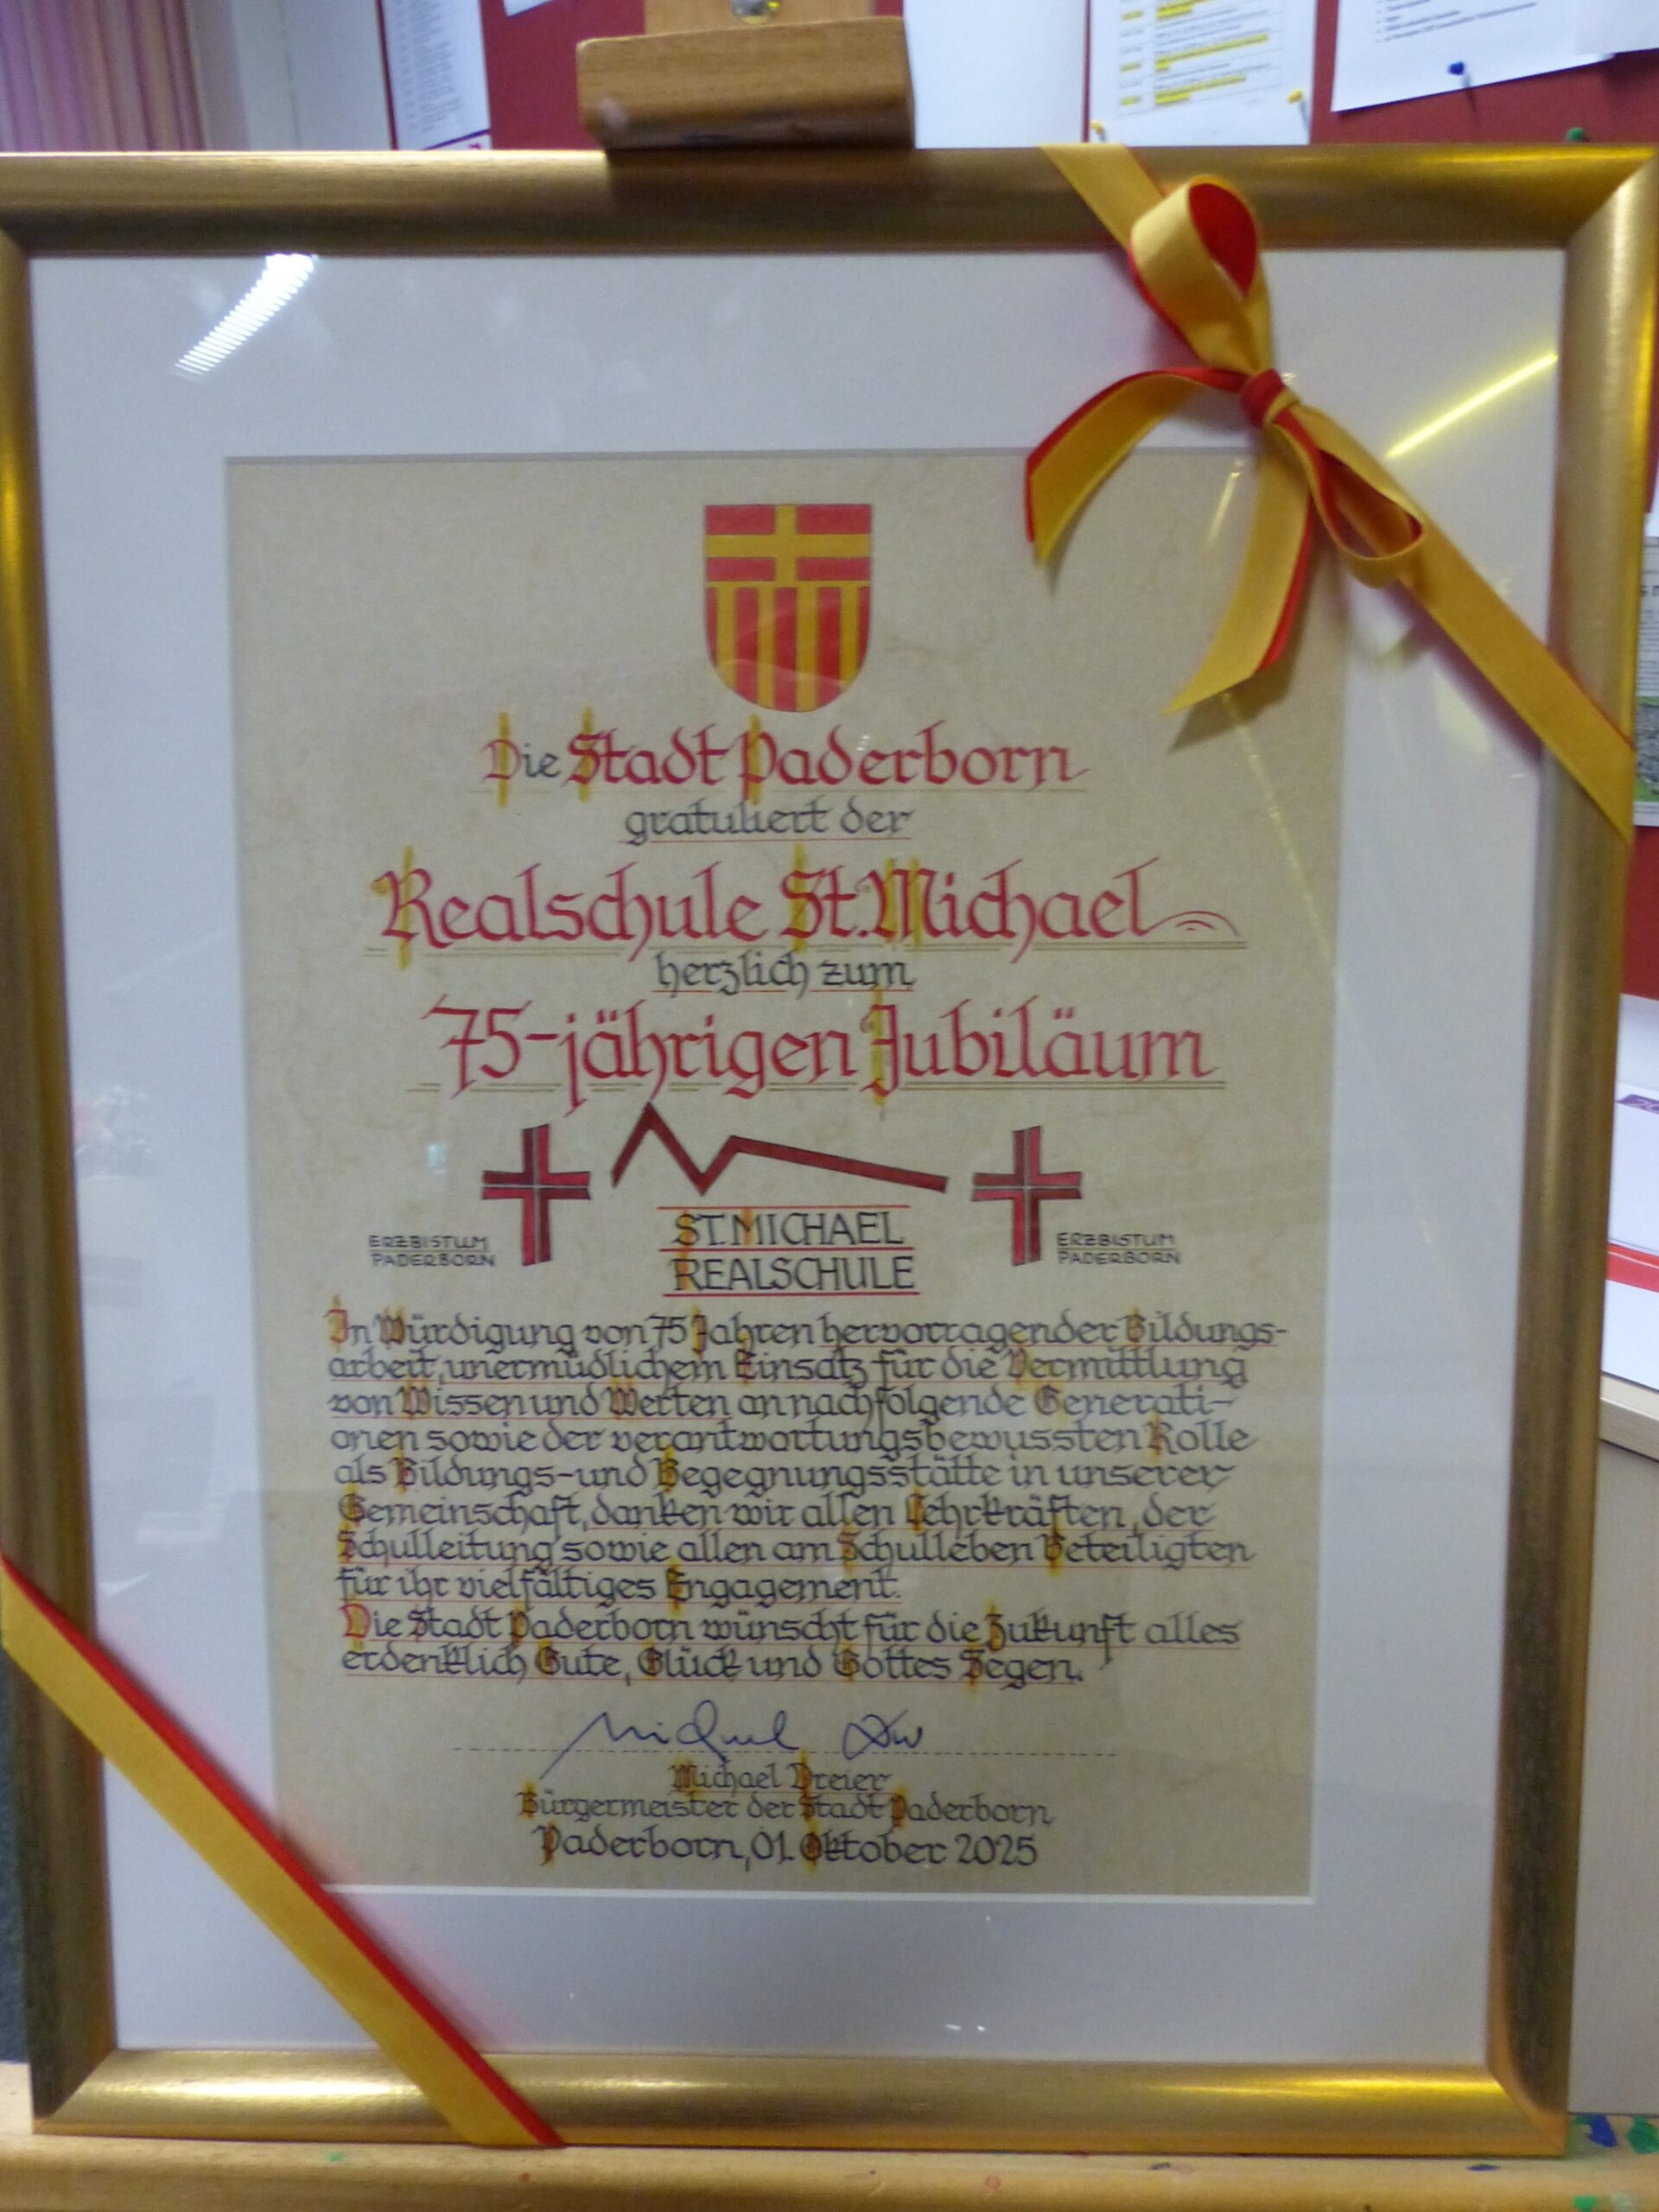 Die Stadt Paderborn
gratuliert der
Realschule St. Michael
herzlich zum
75-jährigen Jubiläum
ERZBISTUM
PADERBORN
ST. MICHAEL
REALSCHULE
ERZBISTUM
PADERBORN
In Würdigung von 75 Jahren hervorragender Bildungs-
arbeit, unermüdlichem Einsatz für die Vermittlung
von Wissen und Werten an nachfolgende Generati-
onen sowie der verantwortungsbewussten Rolle
als Bildungs- und Begegnungsstätte in unserer
Gemeinschaft, danken wir allen Lehrkräften, der
Schulleitung sowie allen am Schulleben Beteiligten
für ihr vielfältiges Engagement.
Die Stadt Paderborn wünscht für die Zukunft alles
erdenklich Gute, Glück und Gottes Segen.
Michael Dreier
Bürgermeister der Stadt Paderborn
Paderborn, 01. Oktober 2025